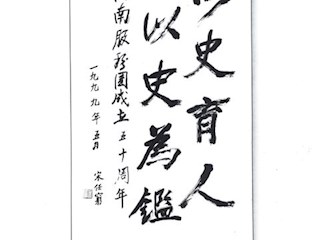 以史育人
以史為鑑
南服務團成立五十周年
一九九九年五月
宋任窮